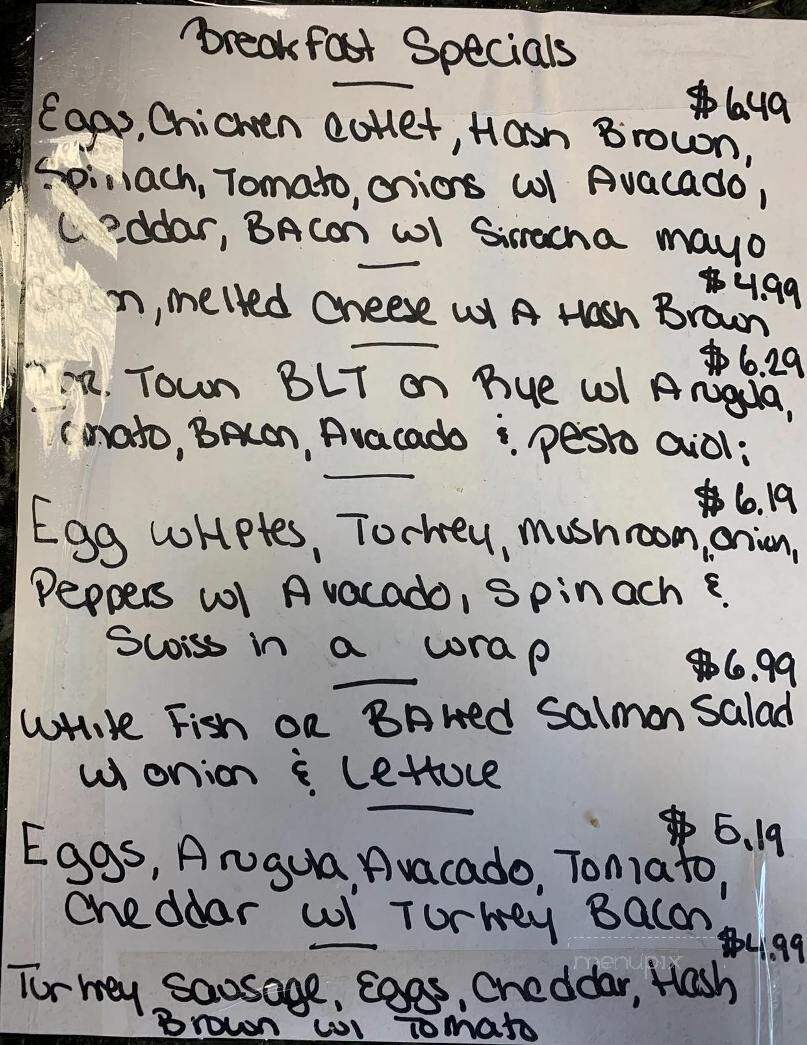 Breakfast Specials
$6.49
Eggs, Chicken cutlet, Hash Brown,
Spinach, Tomato, onions w/ Avacado,
Cheddar, BAcon w/ Sirracha mayo
$4.99
melted cheese w/ A Hash Brown
$6.29
Town BLT on Rye w/ Arugula,
Tomato, BAcon, Avacado & pesto aioli
$6.19
Egg wHites, Turkey, mushroom, onion,
Peppers w/ Avacado, Spinach &
Swiss in a wrap
$6.99
WHite Fish OR BAked Salmon Salad
w/ onion & Lettuce
$5.19
Eggs, Arugula, Avacado, Tomato,
Cheddar w/ Turkey Bacon
$4.99
menupix
Turkey Sausage, Eggs, Cheddar, Hash
Brown w/ Tomato